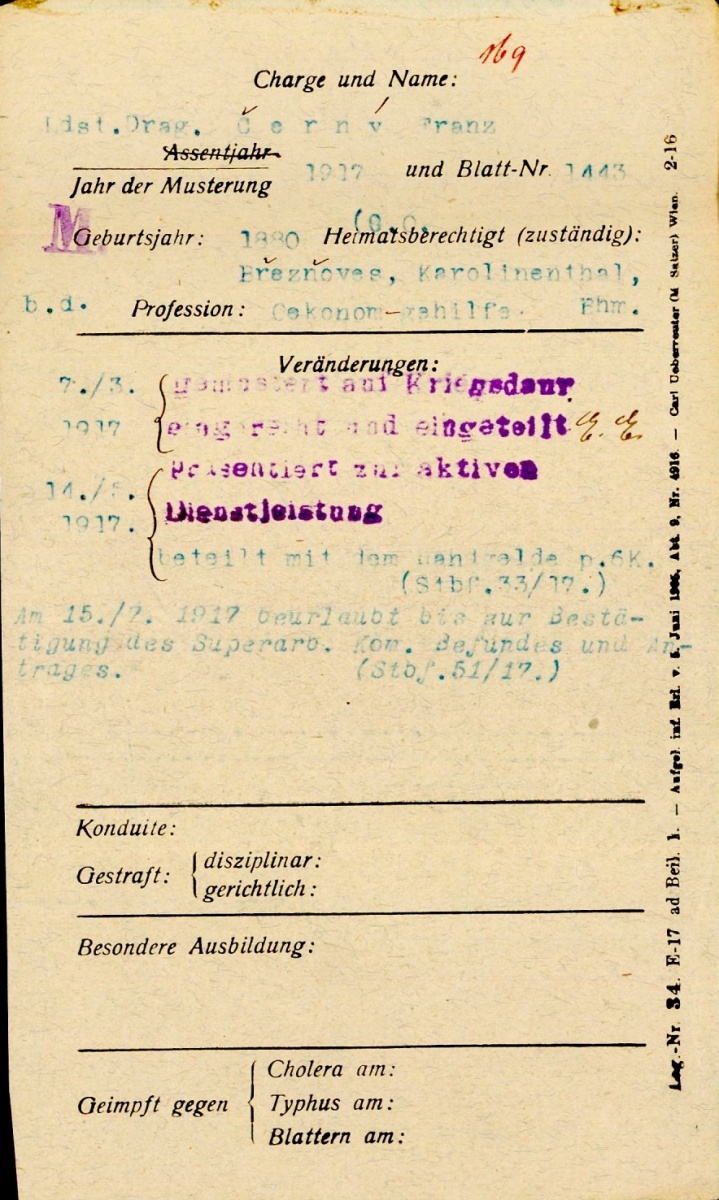 169
Charge und Name:
Ldst.Drag. Č e r n ý Franz
Assentjahr
Jahr der Musterung 1917 und Blatt-Nr. 1443
M
Geburtsjahr: 1880 Heimatsberechtigt (zuständig):
Březnoves, Karolinenthal,
b.d. Profession: Oekonom-gehilfe. Bhm.
Veränderungen:
7./3. gemustert auf Kriegsdaur
1917 und eingeteilt E. E.
Präsentiert zur aktiven
14./5. Dienstleistung
1917.
beteilt mit dem p.6K.
(Stbf.33/17.)
Am 15./7. 1917 beurlaubt bis zur Bestä-
tigung des Superarb. Kom. Befundes und An-
trages. (Stbf.51/17.)
Konduite:
Gestraft: disziplinar:
gerichtlich:
Besondere Ausbildung:
Geimpft gegen
Cholera am:
Typhus am:
Blattern am:
Lag.-Nr. 34. E-17 ad Beil. 1. — Aufgel. inf. Erl. v. 5. Juni 1905, Abt. 9, Nr. 4916. — Carl Ueberreuter (M Salzer) Wien. 2-16